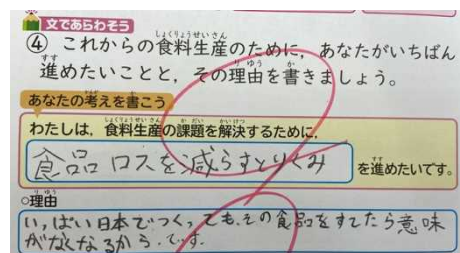 文であらわそう
④ これからの食料生産のために，あなたがいちばん
進めたいことと，その理由を書きましょう。
あなたの考えを書こう
わたしは，食料生産の課題を解決するために，
食品ロスを減らすとりくみ
を進めたいです。
○理由
いっぱい日本でつくっても、その食品をすてたら意味
がなくなるから。です。